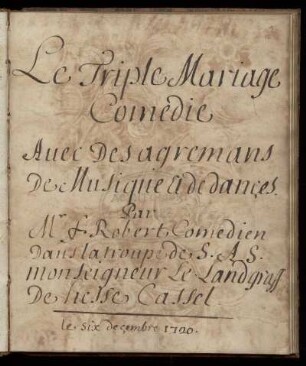 Le Triple Mariage
Comedie
Avec Des agremans
De Musique & de dances.
Par
Mr. f. Robert Comedien
Dans la troupe de S. A. S.
monseigneur Le Landgraff
De hesse Cassel
le six decembre